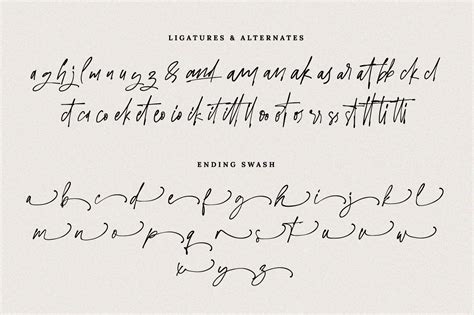 LIGATURES & ALTERNATES
a g h j l m n u y z & and am an ak as ar at bb ck cl
ct ca co ek et eo io ik it ill ll oo ot os rr ss tt ll ti tt
ENDING SWASH
a b c d e f g h i j k l
m n o p q r s t u v w
x y z